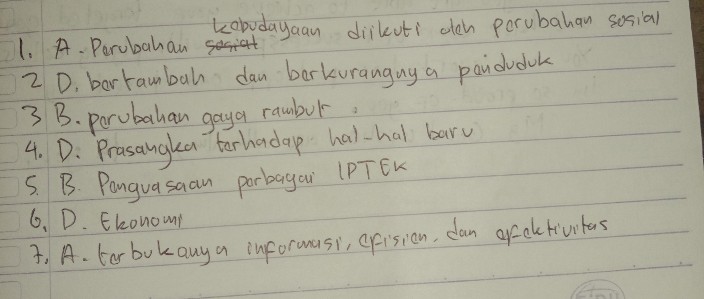 1. A. Perubahan kebudayaan diikuti oleh perubahan sosial
2 D. bertambah dan berkurangnya penduduk
3 B. perubahan gaya rambut.
4. D. Prasangka terhadap hal-hal baru
5. B. Penguasaan perbagai IPTEK
6. D. Ekonomi
7. A. terbukanya informasi, efisien, dan efektivitas